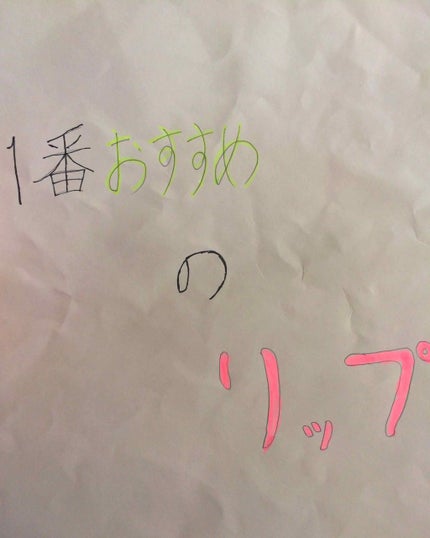 1番おすすめ
の
リップ